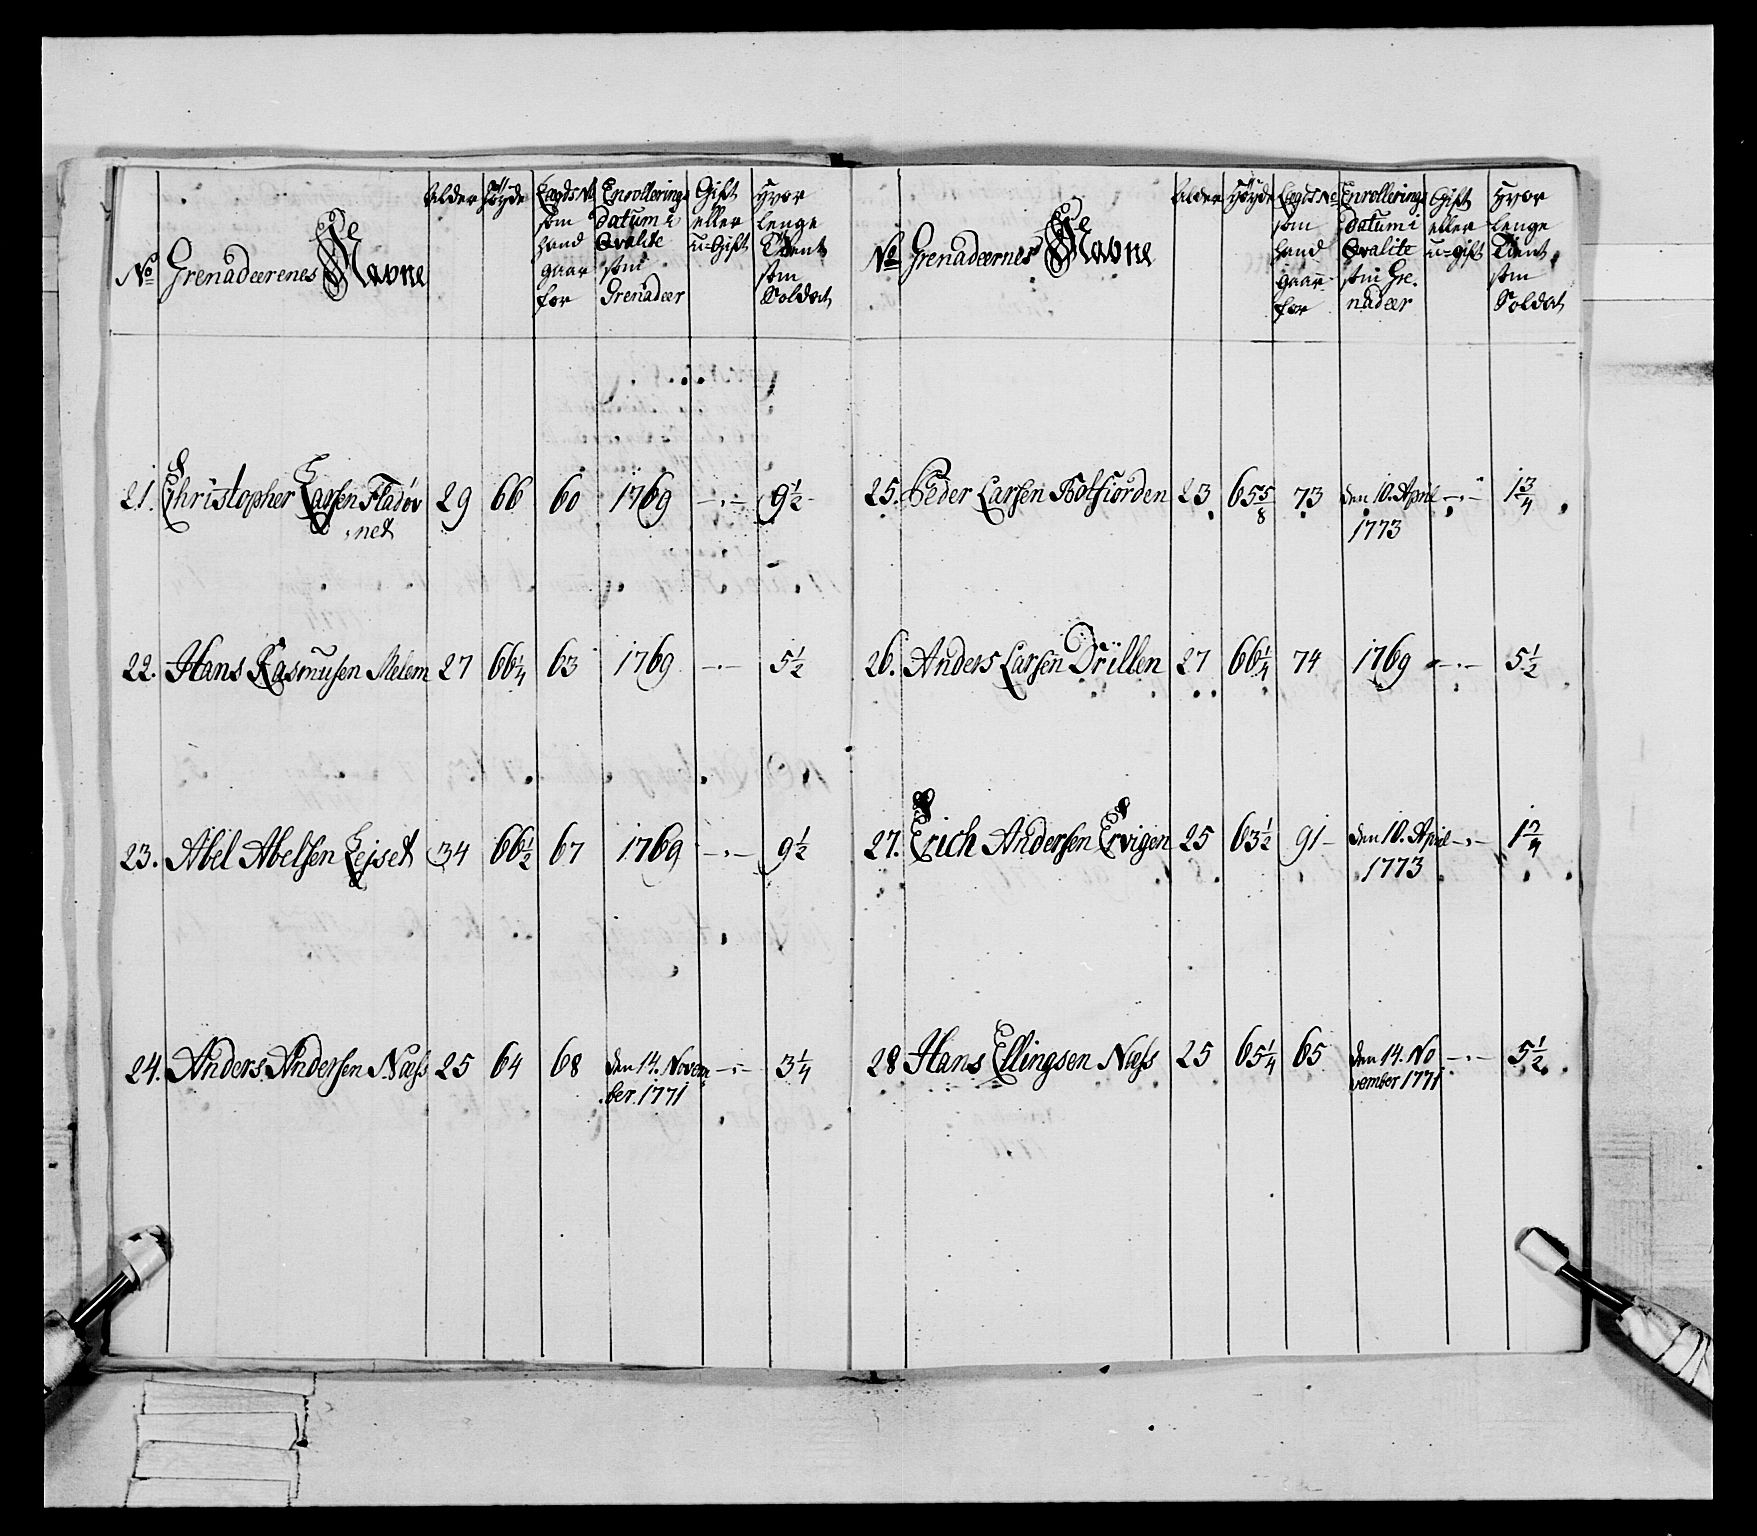 No
Grenadeerenes Navne
Alder
Höyde
Lægds No
som
hand
gaar
for
Enrollerings
datum i
Qvalite
som
Grenadeer
Gift
eller
u-Gift
Hvor
lenge
Tient
som
Soldat
21. Christopher Larsen Fladöv 29 66 60 1769 -.- 9½
net
22. Hans Rasmusen Melem 27 66¼ 63 1769 -.- 5½
23. Abel Abelsen Lejset 34 66½ 67 1769 -.- 9½
24. Anders Andersen Næss 25 64 68 den 14. Novem -.- 3¼
ber. 1771
No
Grenadeernes Navne
Alder
Höyde
Lægds No
som
hand
gaar
for
Enrollerings
datum i
Qvalite
som Gre.
nadeer
Gift
eller
u-gift
Hvor
lenge
Tient
som
Soldat
25. Peder Larsen Botfiorden 23 65⅝ 73 den 10. April -.- 1¾
1773
26. Anders Larsen Drillen 27 66¼ 74 1769 -.- 5½
27. Erich Andersen Ervigen 25 63½ 91 den 10. April -.- 1¾
1773
28 Hans Ellingsen Næss 25 65¼ 65 den 14. No -.- 5½
vember 1771